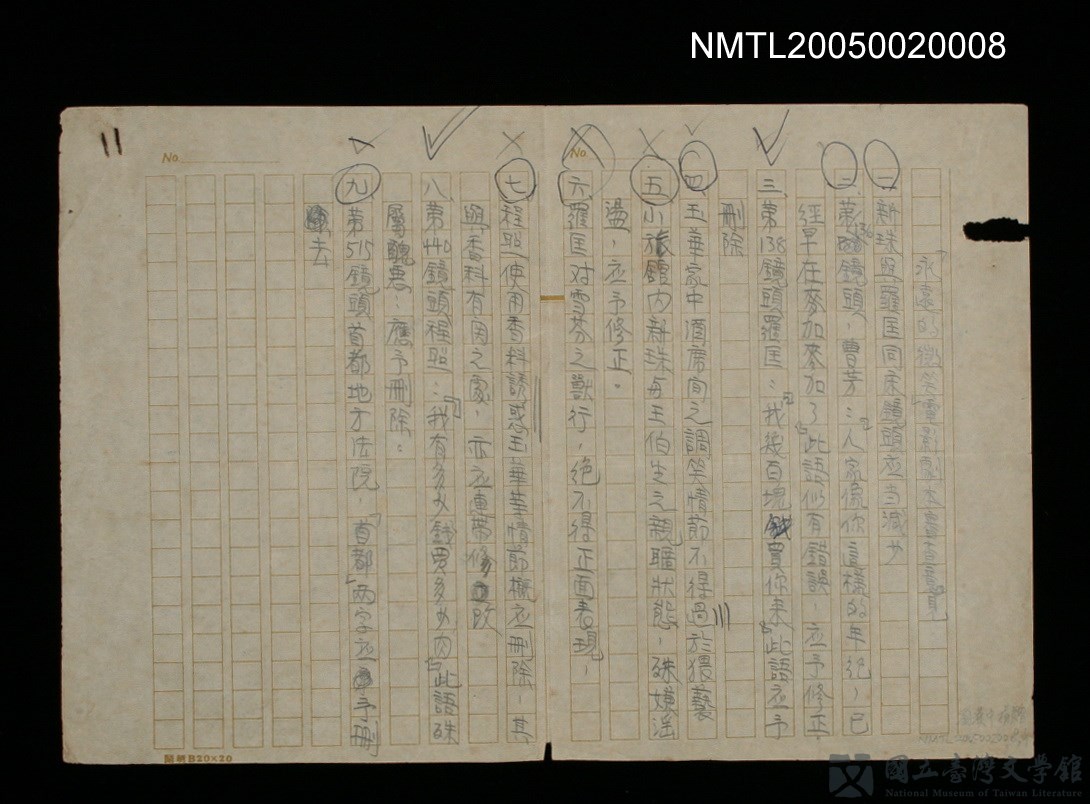 NMTL20050020008
11
No.
No.
「永恆的微笑」電影劇本
一、新珠與羅匡同床鏡頭應当減少
二、第136鏡頭，曹芳：「人家像你這樣的年紀，已
經早在麥加麥加了」此語似有錯誤，应予修正。
三、第138鏡頭羅匡：「我幾百塊錢買你来」此語应予
刪除
四、玉華家中酒席间之調笑情節不得過於猥褻
五、小旅館内新珠与王伯生之親暱狀態，殊嫌淫
盪，应予修正。
六、羅匡对雪芬之獸行，絶不得正面表現，
七、程照使用香料誘惑玉華華情節概应刪除，其
與香料有因之處，亦应連帶修改
八、第440鏡頭程照：「我有多少錢買多少肉」此語殊
屬醜惡：應予刪除：
九、第515鏡頭首都地方法院，「首都」两字应予刪
去
蘭綺B20×20
國立臺灣文學館
National Museum of Taiwan Literature